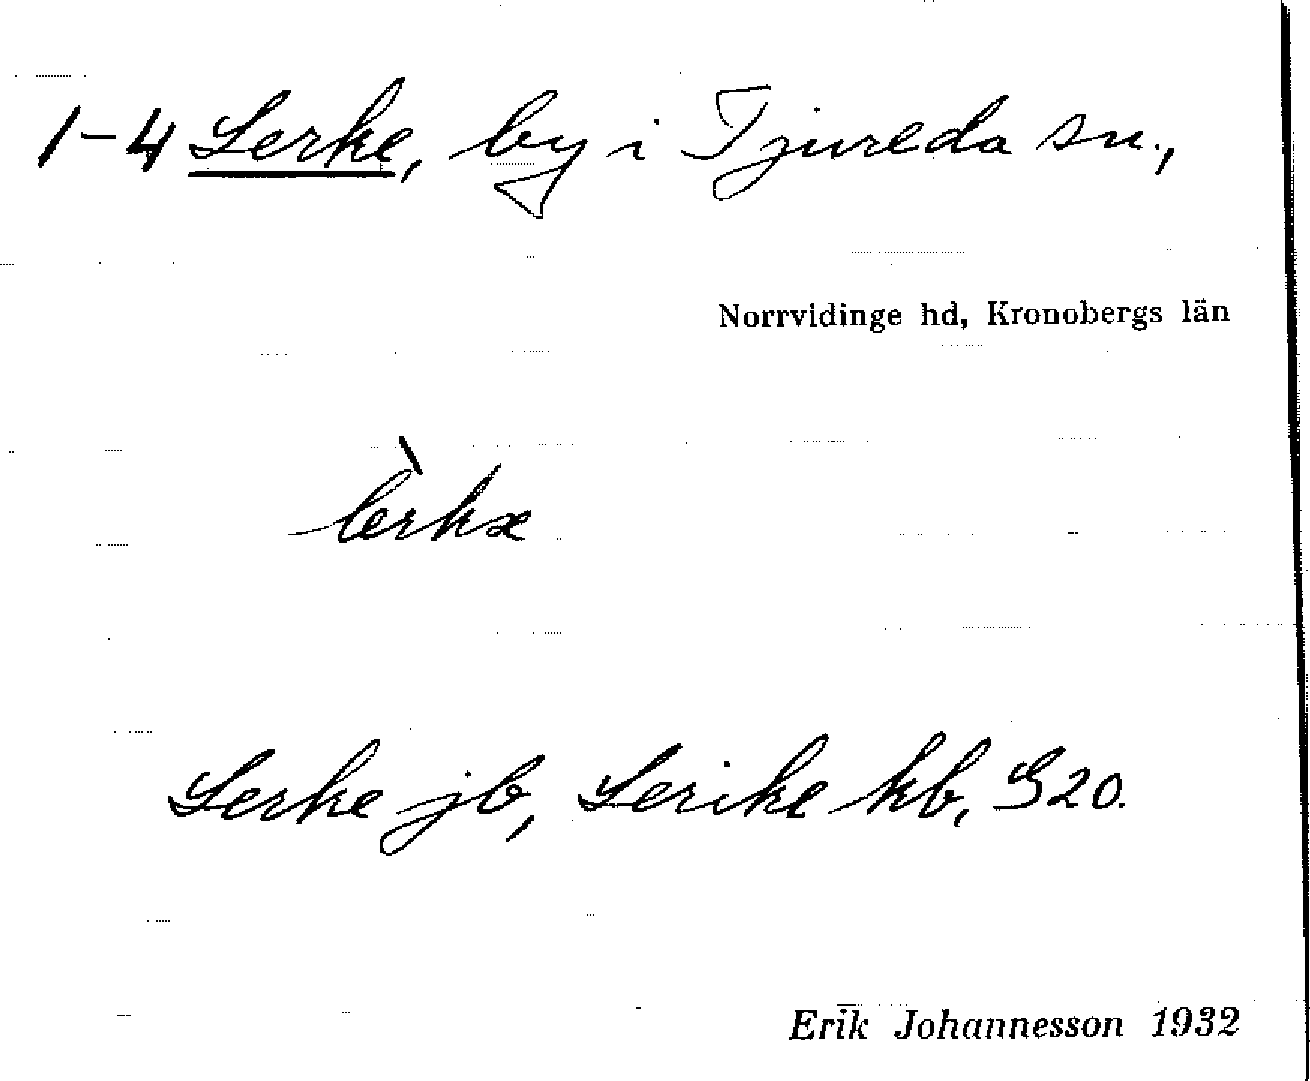 1-4 Lerke, by i Tjureda sn.,
Norrvidinge hd, Kronobergs län
lèrkæ
Lerke jb, Lerike kb, G20.
Erik Johannesson 1932